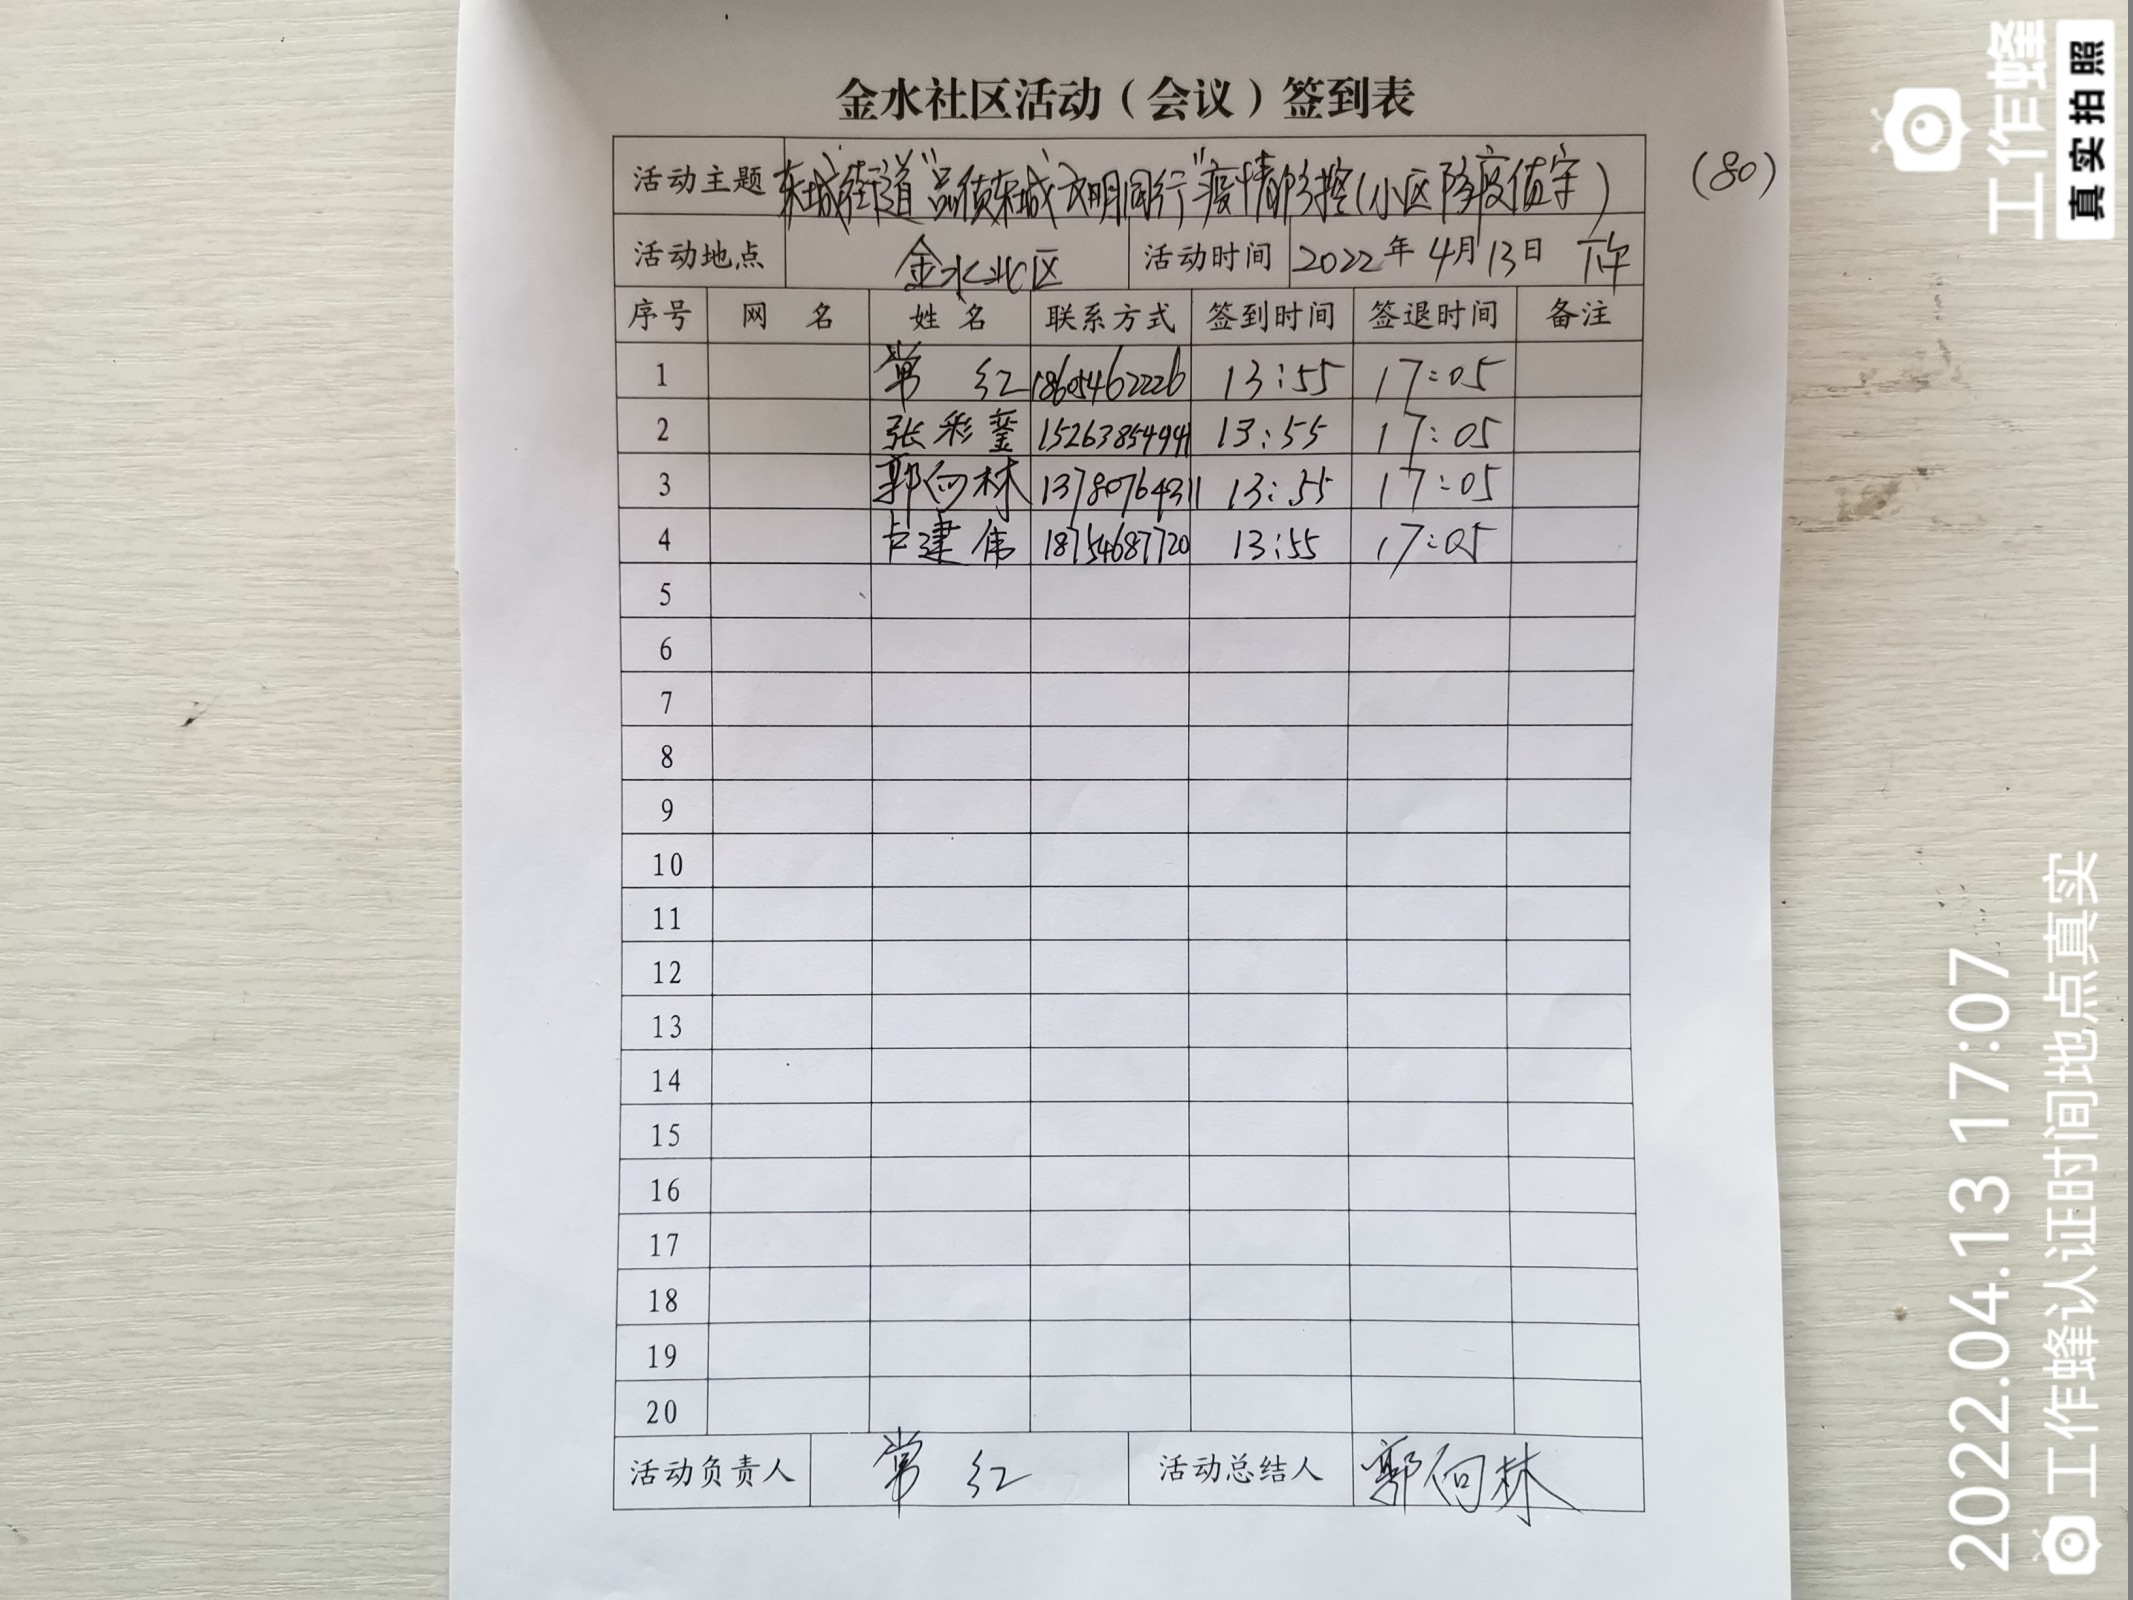 金水社区活动（会议）签到表
活动主题 东城街道“品质东城 文明同行”疫情防控(小区防疫值守) (80)
活动地点 金水北区 活动时间 2022年4月13日 下午
序号 网 名 姓 名 联系方式 签到时间 签退时间 备注
1 常 红 18605462226 13:55 17:05
2 张彩 15263854994 13:55 17:05
3 郭向林 13780764311 13:55 17:05
4 卢建伟 18754687720 13:55 17:05
5
6
7
8
9
10
11
12
13
14
15
16
17
18
19
20
活动负责人 常 红 活动总结人 郭向林
工作蜂
真实拍照
2022.04.13 17:07
工作蜂认证时间地点真实